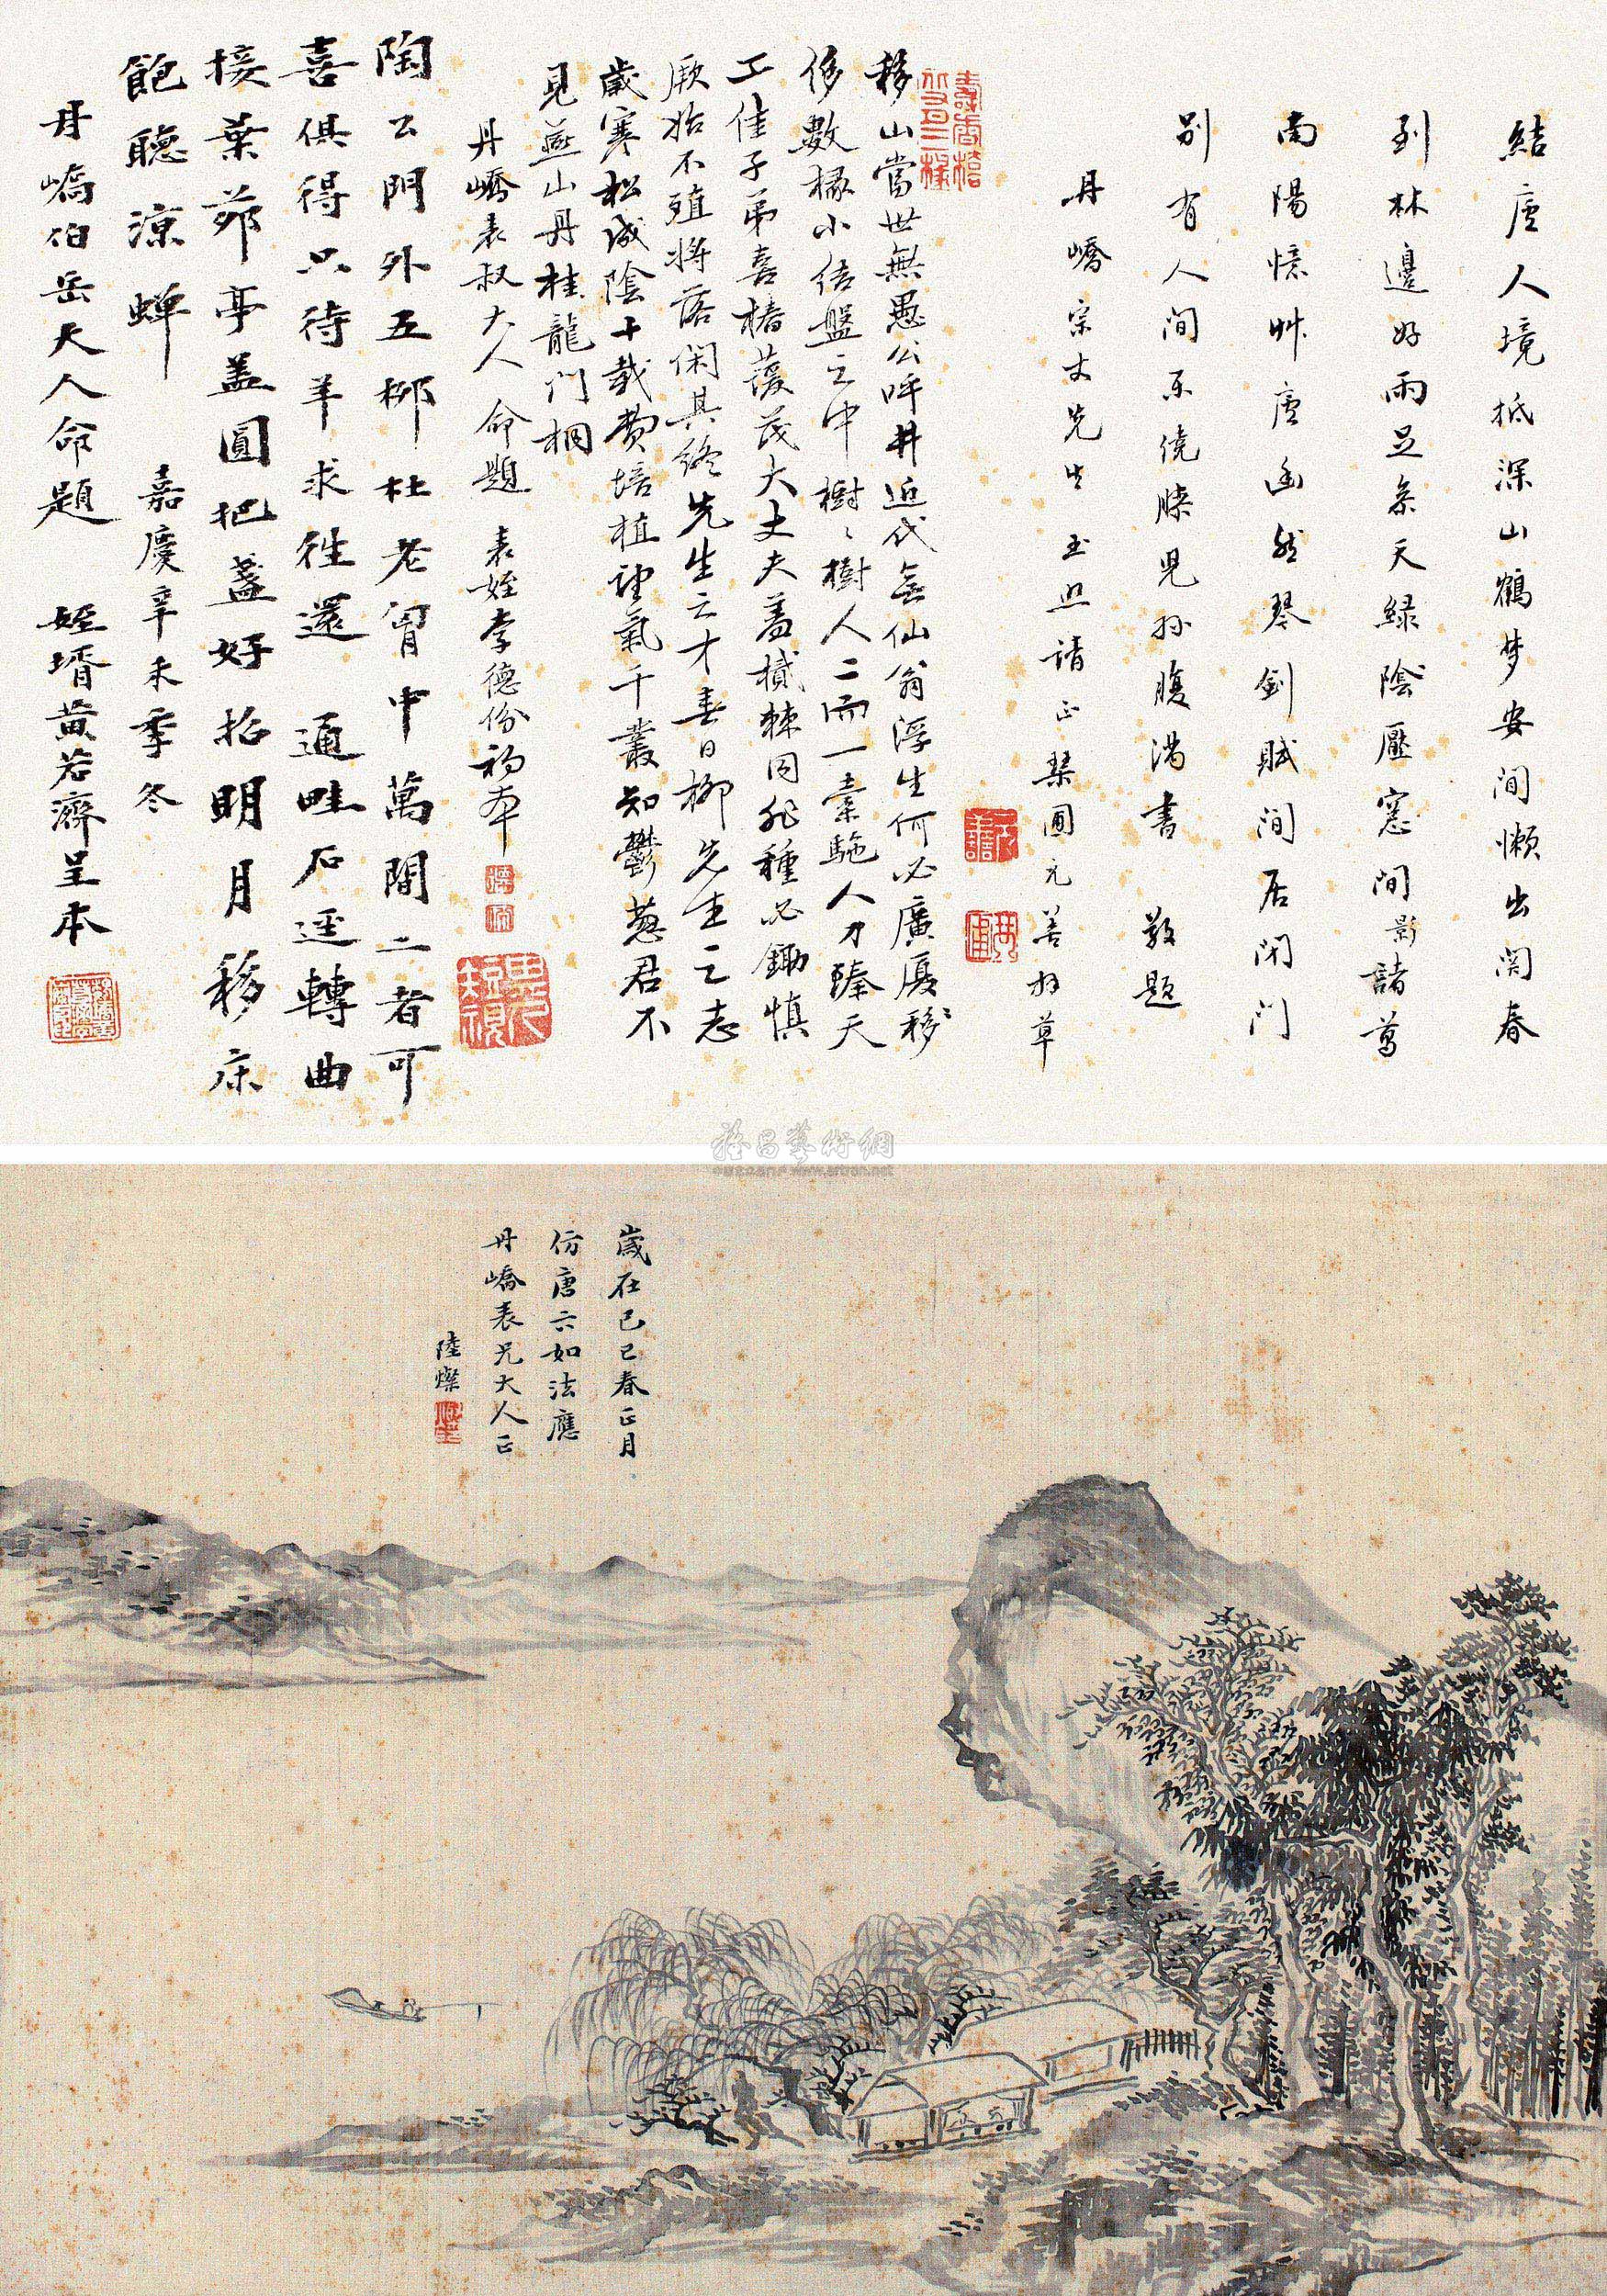 結廬人境抵深山鶴梦安間懶出関春
到林邊好雨足參天緑陰壓窓間影諸葛
南陽憶艸廬幽然琴劍賦閒居閉门
別有人間乐僥膝児孙腹満書　敬題
丹嶠宗丈先生玉照請正琹圃元善初草
移山當世無愚公呼井近代無仙翁浮生何必廣厦移
移數椽小结盤之中樹樹人二而一橐駞人才臻天
工佳子弟喜椿蔭茂大丈夫羞樲棘因非種必鋤慎
厥始不殖將落閑其終先生之才春日柳先生之志
歲寒松成陰十載费培植望氣千叢知鬱葱君不
見燕山丹桂龍门桐
丹嶠表叔大人命題　表姪李德份初本
陶公門外五桺杜老胷中萬間二者可
喜俱得只待羊求徃還　通畦石逕轉曲
接葉茆亭蓋圓把盞好招明月移床
飽聽涼蝉　嘉慶辛未季冬
丹嶠伯岳大人命題　姪壻黄若濟呈本
雅昌藝術網
www.artron.net
歲在己巳春正月
仿唐六如法應
丹嶠表兄大人正
陸燦